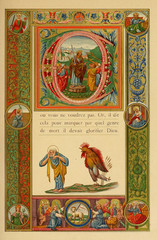 où vous ne voudrez pas. Or, il dit
cela pour marquer par quel genre
de mort il devait glorifier Dieu.